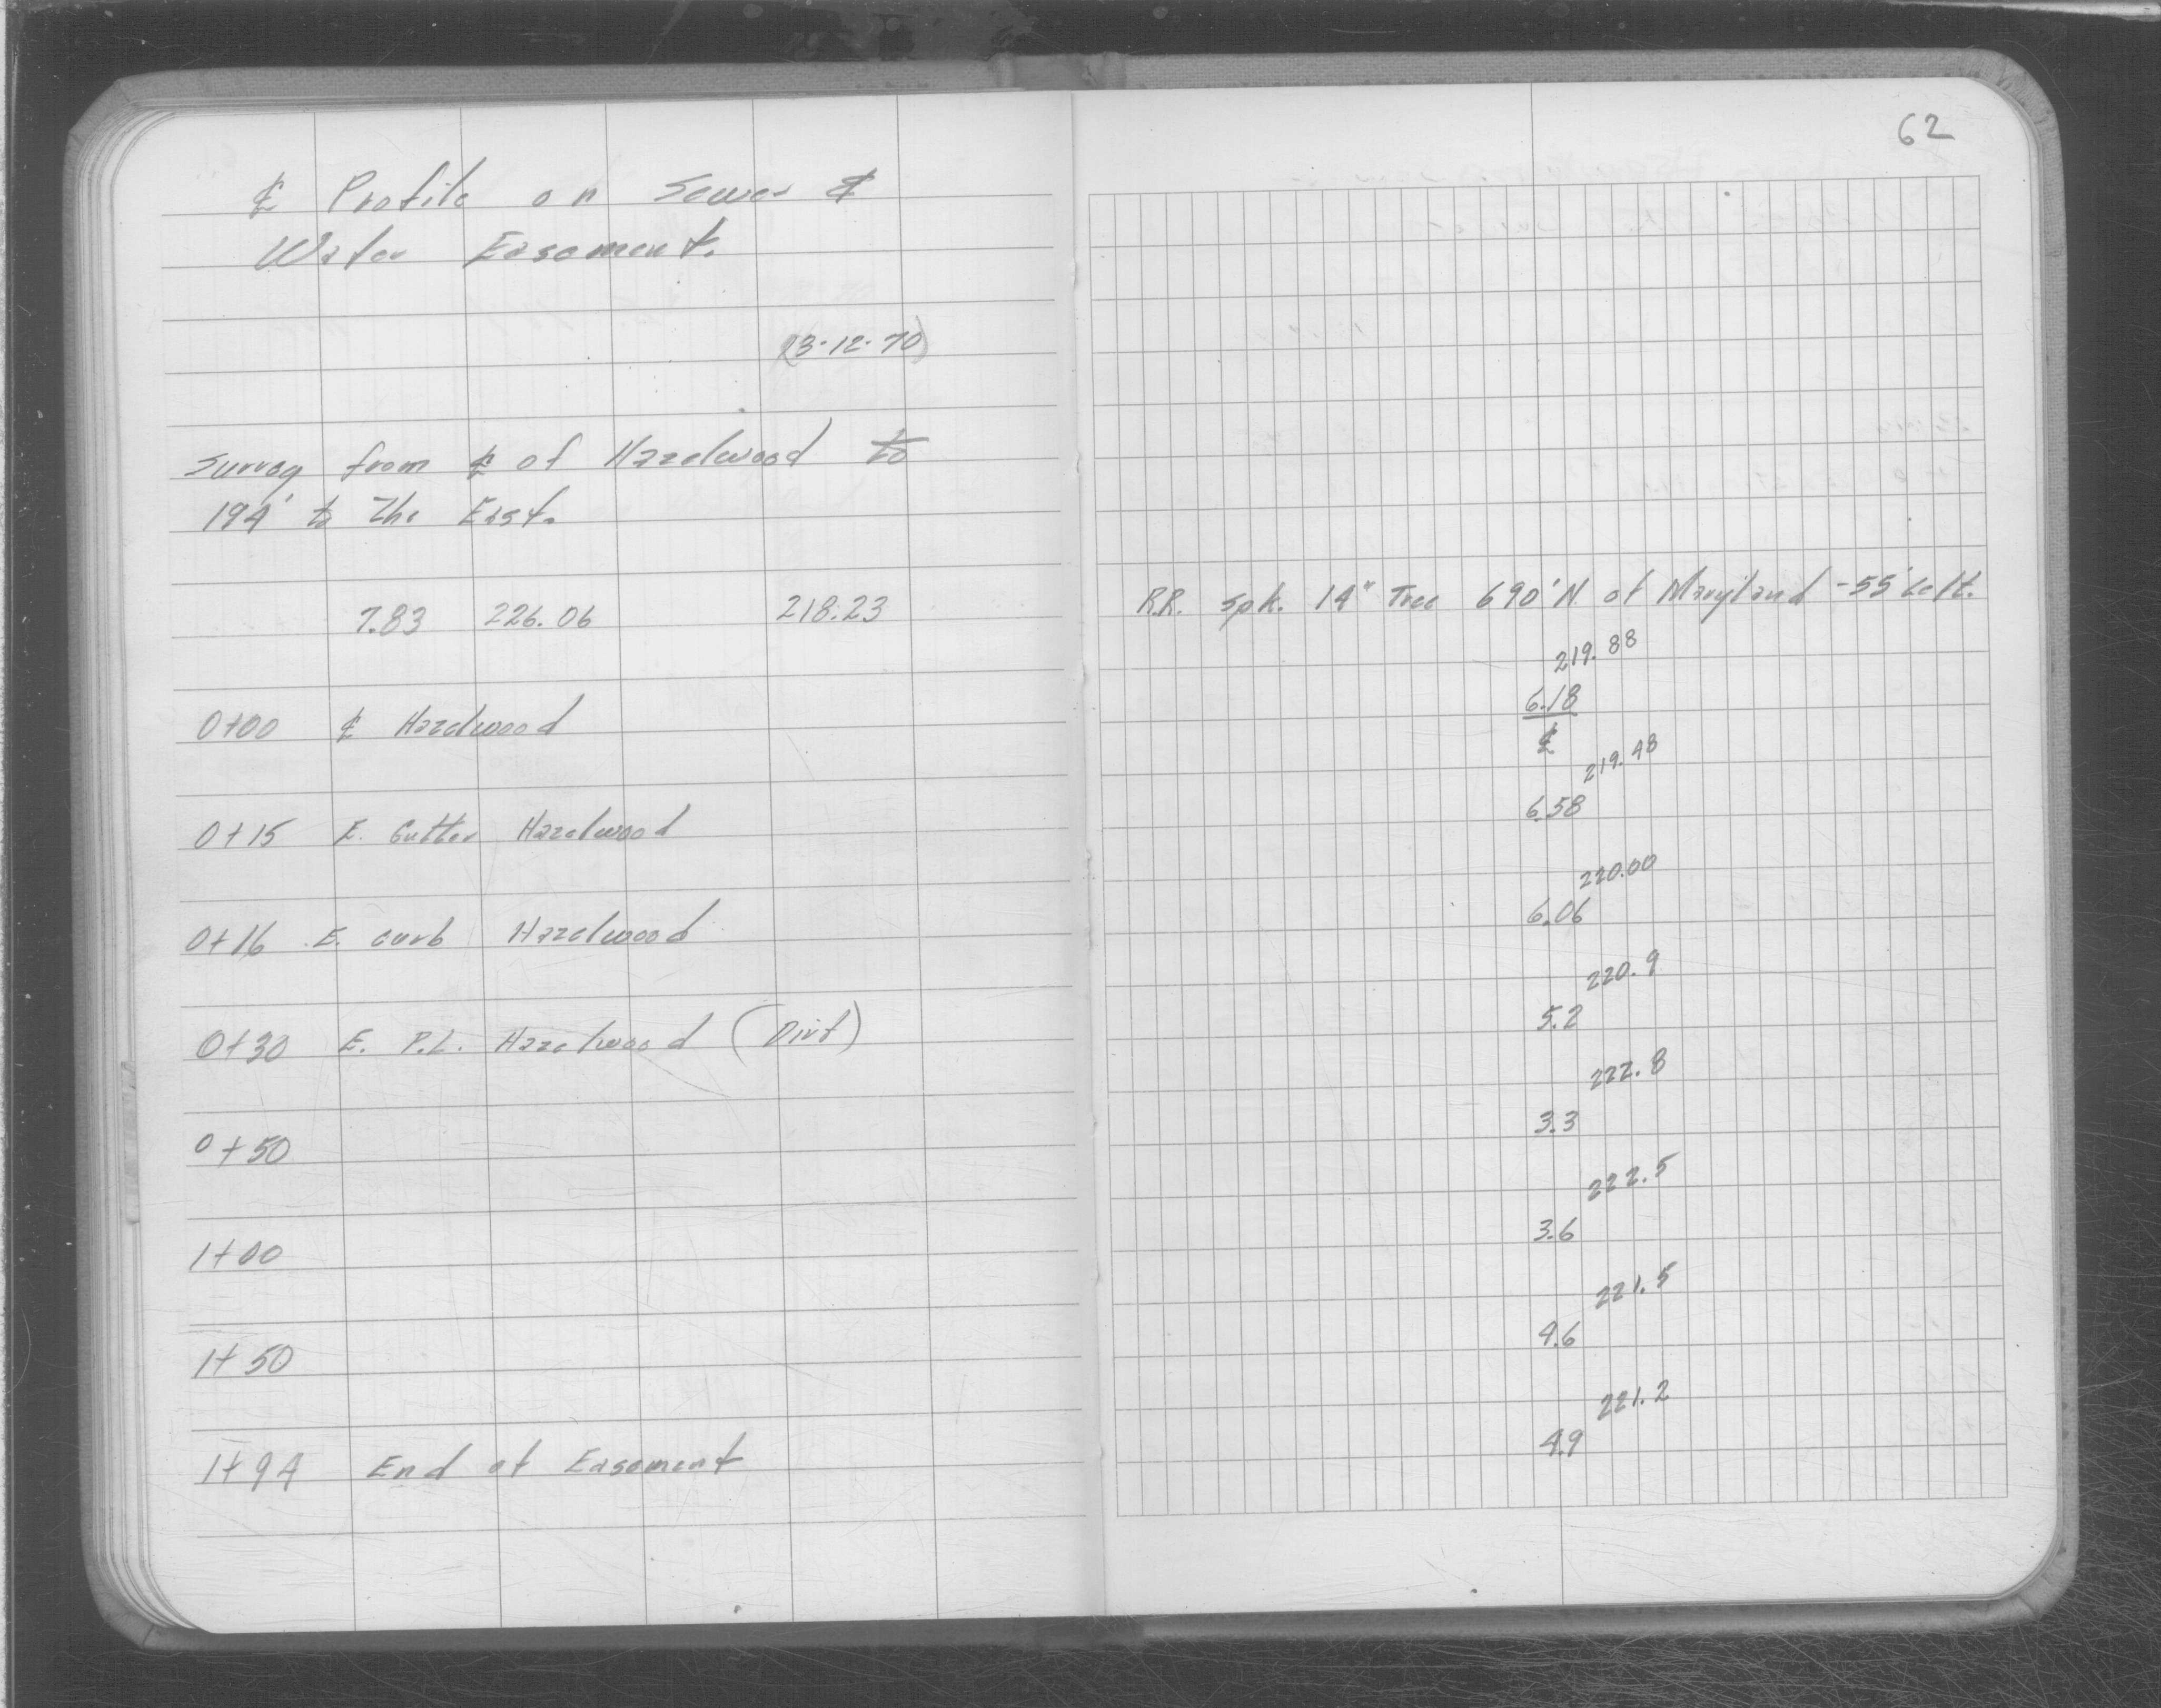 ℄ Profile on Sewer &
Water Easement.
(3-12-70)
Survey from ℄ of Hazelwood to
194' to the East.
7.83 226.06 218.23
0+00 ℄ Hazelwood
0+15 E. Gutter Hazelwood
0+16 E. curb Hazelwood
0+30 E. P.L. Hazelwood (Dirt)
0+50
1+00
1+50
1+94 End of Easement
62
R.R. Spk. 14" Tree 690' N. of Maryland -55' Left.
219.88
6.18
℄
219.48
6.58
220.00
6.06
220.9
5.2
222.8
3.3
222.5
3.6
221.5
4.6
221.2
4.9